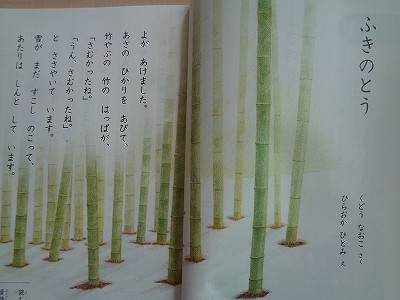 ふきのとう
くどう なおこ さく
ひらおか ひとみ え
よが あけました。
あさの ひかりを あびて、
竹やぶの 竹の はっぱが、
「さむかったね。」
「うん、さむかったね。」
と ささやいて います。
雪が まだ すこし のこって、
あたりは しんと して います。